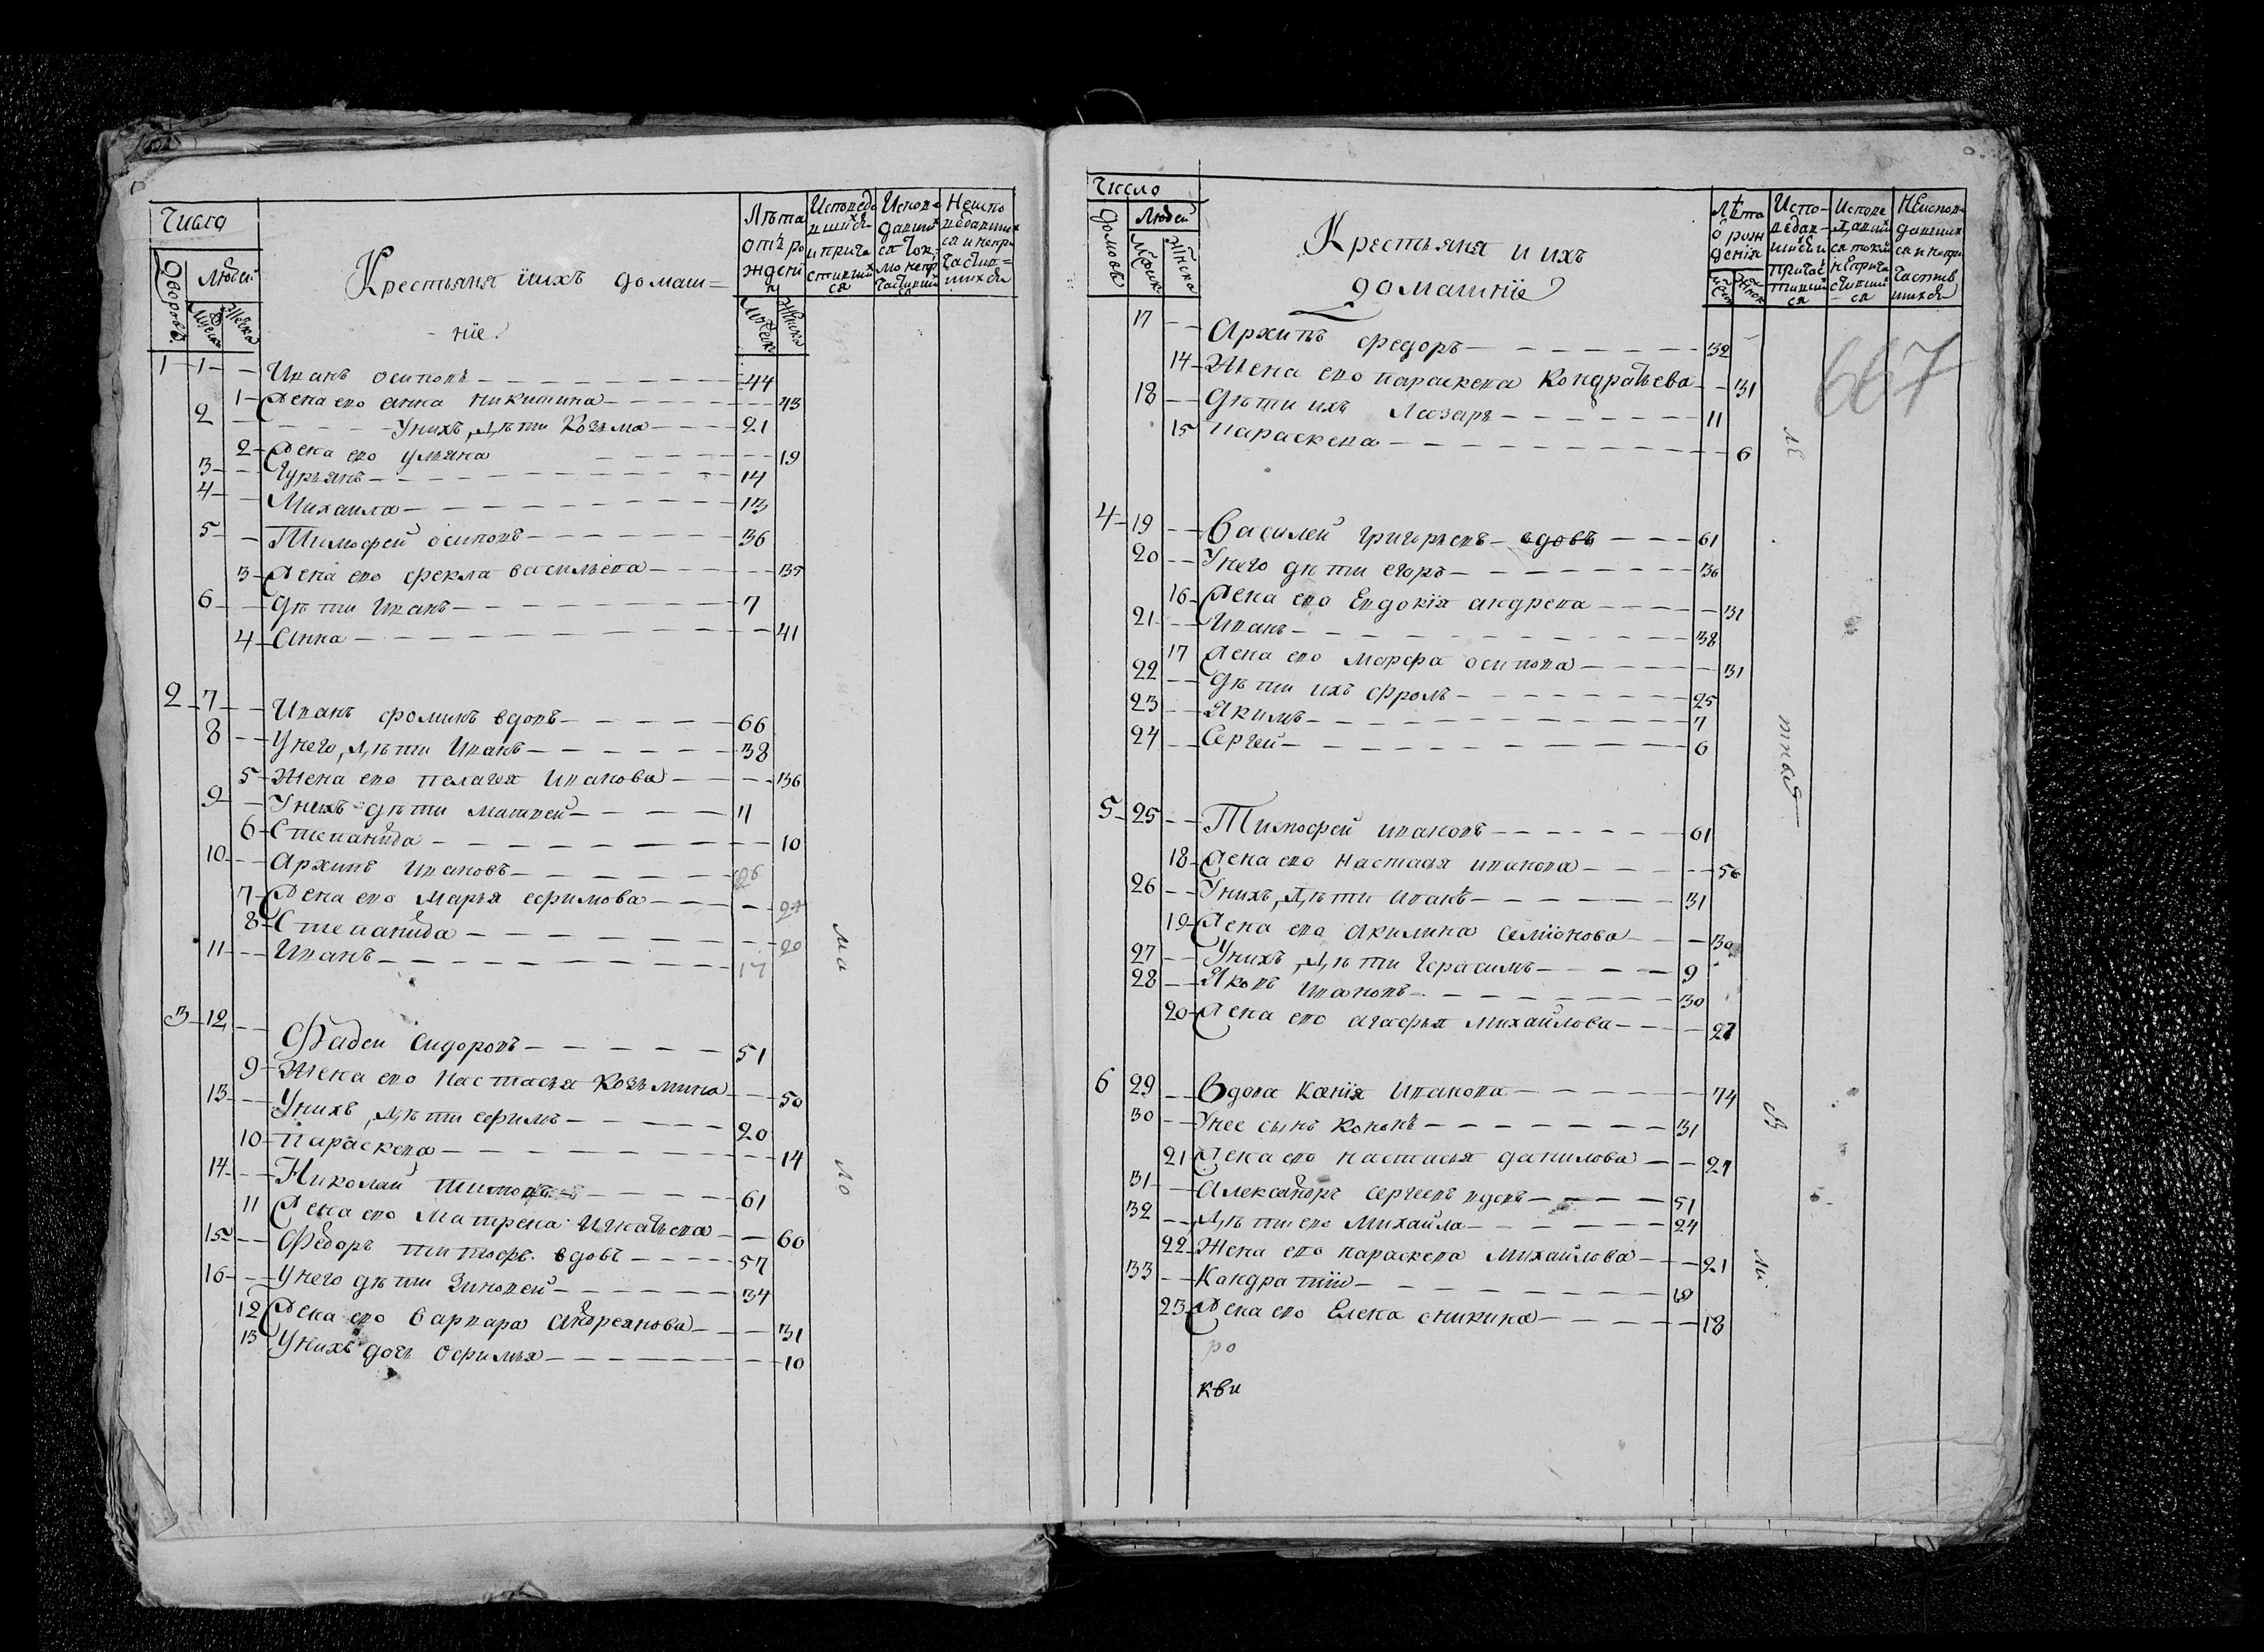 Числа
Дворовъ
Людей
Мужска
Женска
Крестьяня ïихъ домаш=
- нïе.
Лѣта
отъ ро
жденï
я
Мужеска
Женска
Исповеда
вшихся
и прича
стивших
ся
Испове
давших
ся токъ
мо непри
частивших
ся
Неиспо
ведавших
ся и непри
частив=
шихся
1 1 Иванъ осиповъ 44
1 Жена ево анна никитина 43
2 У нихъ дѣти Козма 21
2 Жена ево ульяна 19
3 Гурьянъ 14
4 Михаила 13
5 Тимофей осиповъ 36
3 Жена ево фекла васильева 35
6 дѣти Иванъ 7
4 Анна 41
2 7 Иванъ фоминъ вдовъ 66
8 У него дѣти Иванъ 38
5 Жена ево пелагея Иванова 36
9 У нихъ дѣти матвей 11
6 Степанида 10
10 Архипъ Ивановъ 26
7 Жена ево Марья ефимова 24
8 Степанида 20
11 Иванъ 17
ма
3 12 Фадеи Сидоровъ 51
9 Жена ево Настасья Козьмина 50
13 У нихъ дѣти ефимъ 20
10 параскева 14
14 Николай 61
11 Жена ево Матрена Игнатьева 60
ло
15 Федоръ вдовъ 57
16 У него дѣти Зиновей 34
12 Жена ево варвара Андреянова 31
13 У нихъ дочь Офимья 10
Число
Домовъ
Людей
Мужск
Женска
Крестьяня и ихъ
домашнïе
Лѣта
ѿ рож
денïя
Муж
Женск
Испо-
ведав-
шихся и
причас
тивших
ся
Испове
давших
ся токмо
неприча
стивших
ся
Неиспове
давших
ся и непри
частив
шихся
667
17 Архипъ федоръ 32
14 Жена ево параскева Кондратьева 31
18 дѣти ихъ Лазарь 11
15 параскева 6
4 19 Василей григорьевъ вдовъ 61
20 У него дѣти егоръ 36
16 Жена ево Евдокïя андрева 31
21 Иванъ 38
17 Жена ево марфа осипова 31
22 дѣти ихъ фролъ 25
23 Якимъ 7
24 Сергеи 6
5 25 Тимофей ивановъ 61
18 Жена ево настасья иванова 56
26 У нихъ дѣти иванъ 31
19 Жена ево акилина семïонова 30
27 У нихъ дѣти герасимъ 9
28 Яковъ Ивановъ 30
20 Жена ево агафья михайлова 27
6 29 Вдова Ксенïя Иванова 74
30 У нее сынъ Кононъ 31
21 Жена ево настасья данилова 27
31 Александръ сергеевъ вдовъ 51
32 дѣти ево Михайла 24
22 Жена ево параскева Михайлова 21
33 Кондратïи 19
23 Жена ево Елена аникина 18
ро
кви